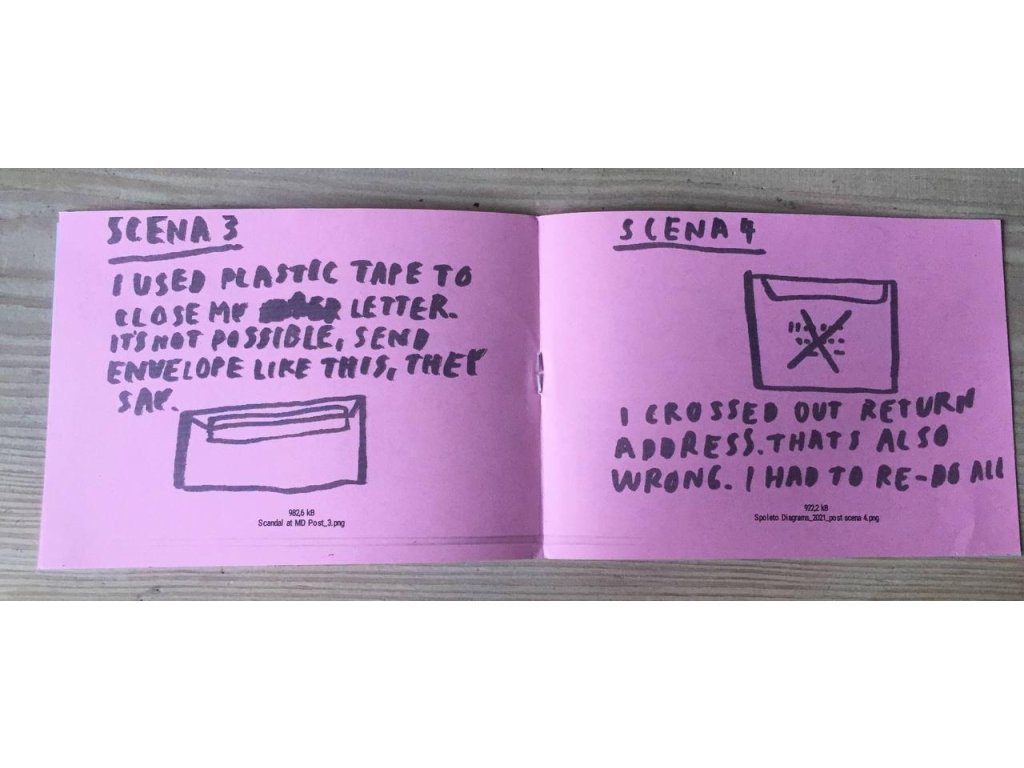 SCENA 3
I USED PLASTIC TAPE TO
CLOSE MY LETTER.
IT'S NOT POSSIBLE, SEND
ENVELOPE LIKE THIS, THEY
SAY.
982,6 kB
Scandal at MD Post_3.png
SCENA 4
I CROSSED OUT RETURN
ADDRESS. THATS ALSO
WRONG. I HAD TO RE-DO ALL
922,2 kB
Spoleto Diagrams_2021_post scena 4.png